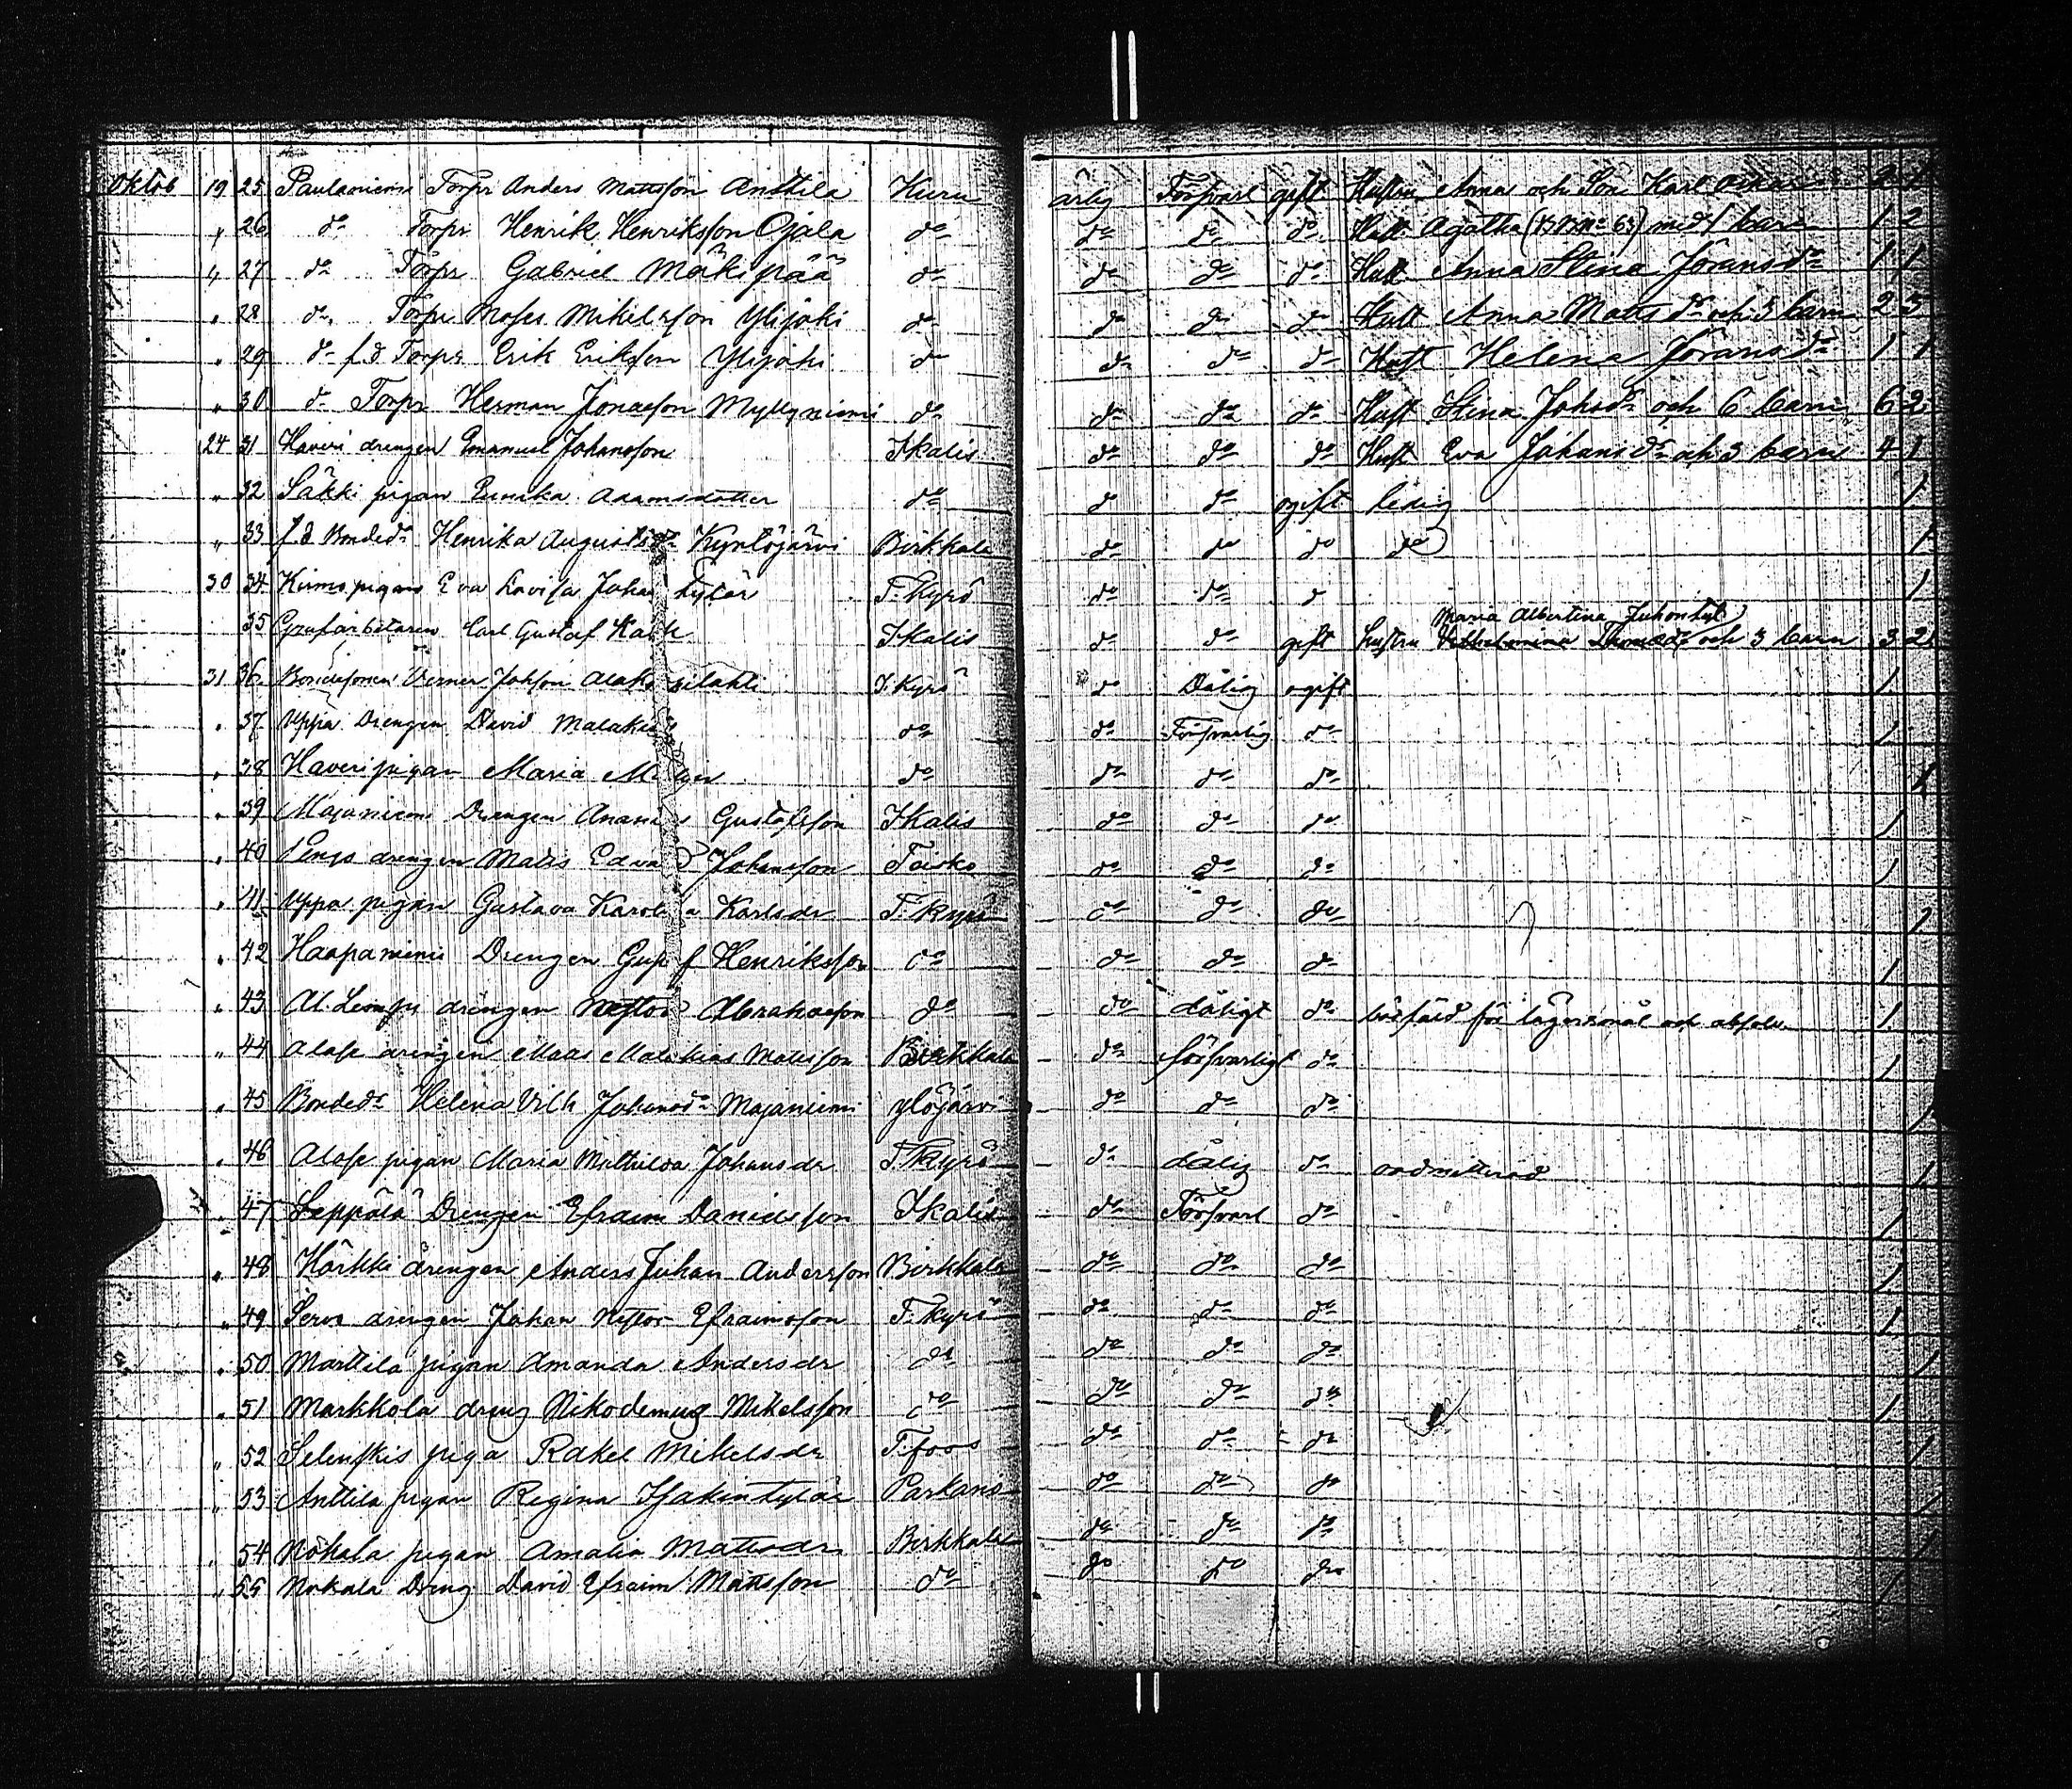 Oktob 19 25 Paulaniemi Torpr Anders Mattsson Anttila Kuru ärlig Försvarl gift Hustru Anna och Son Karl Oskar 2 1
" 26 do Torpr Henrik Henriksson Ojala do do do do Hust Agatha (BB No 63) med 1 barn 1 2
" 27 do Torpr Gabriel Mäkipää do do do do Hust Anna Stina Joransdr 1 1
" 28 do Torpr Moses Mikelsson Ylijoki do do do do Hust Anna Mattsdr och 3 barn 2 3
" 29 do f.d Torpr Erik Eriksson Ylijoki do do do do Hust Helena Joransdr 1 1
" 30 do Torpr Herman Jonasson Myllyniemi do do do do Hust Stina Johsdr och 6 barn 6 2
24 31 Haveri drengen Emanuel Johansson Ikalis do do do Hust Eva Johansdr och 3 barn 4 1
" 32 Säkki pigan Eunika Adamsdotter do do do ogift ledig 1
" 33 f.d Bondedr Henrika Augustsdr Kyntöjärvi Birkkala do do do do 1
30 34 pigan Eva Lovisa Johan tytär T. Kyrö do do do 1
35 Grufarbetaren Carl Gustaf Ikalis do do gift hustru Maria Albertina Juhontyt och 3 barn 3 2
31 36 Bondesonen Verner Johsson T. Kyrö do Dålig ogift 1
" 37 Uppa Drengen David do do Försvarlig do 1
" 38 Haveri pigan Maria do do do do 1
" 39 Majaniemi Drengen Gustafsson Ikalis do do do 1
" 40 drengen Matts Edvard Johansson Teisko do do do 1
" 41 Uppa pigan Gustava Karolina Karlsdr T. Kyrö do do do 1
" 42 Haapaniemi Drengen Gustaf Henriksson do do do do 1
" 43 drengen Nestor Abrahamsson do do dåligt do för och 1
" 44 Alase drengen Matts Malakias Mattsson Birkkala do försvarligt do 1
" 45 Bondedr Helena Vilh Johansdr Majaniemi Ylöjärvi do do do 1
" 46 Alase pigan Maria Mathilda Johansdr T. Kyrö do dålig do oadmitterad 1
" 47 Leppälä Drengen Efraim Danielsson Ikalis do Försvarl do 1
" 48 Härkki drengen Anders Johan Andersson Birkkala do do do 1
" 49 drengen Johan Nestor Efraimsson T. Kyrö do do do 1
" 50 Marttila pigan Amanda Andersdr do do do do 1
" 51 Markkola dreng Nikodemus Mikelsson do do do do 1
" 52 piga Rakel Mikelsdr T:fors do do do 1
" 53 Anttila pigan Regina Isakin tytär Parkano do do do 1
" 54 Nokala pigan Amalia Mattsdr Birkkala do do do 1
" 55 Nokala Dreng David Efraim Mattsson do do do do 1